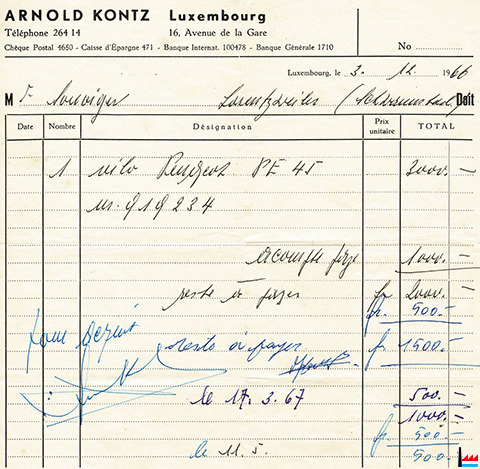 ARNOLD KONTZ Luxembourg
Téléphone 264 14 16, Avenue de la Gare
Chèque Postal 4650 - Caisse d'Épargne 471 - Banque Internat. 100478 - Banque Générale 1710 No
Luxembourg, le 3. 12. 1966
M r Lorentzweiler Doit
Date Nombre Désignation Prix unitaire TOTAL
1 vélo Peugeot PE 45 3000.-
nr. 919234
acompte payé 1000.-
reste à payer fr 2000.-
fr. 500.-
Pour acquit reste à payer fr. 1500.-
le 17.3.67 500.-
1000.-
fr 500-
le 11.5. 500-